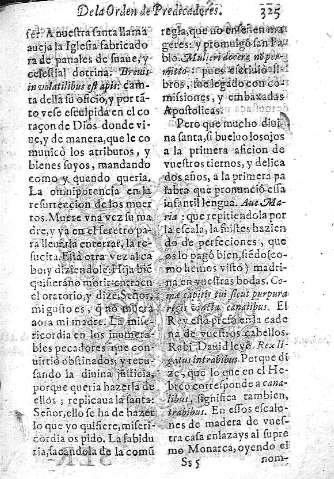 De la Orden de Predicadores. 325
ser. A nuestra santa llama
aueja la Iglesia fabricado
ra de panales de suaue, y
celestial doctrina. Breuis
in volatilibus est apis: can
ta della su oficio, y por tã
to va esculpida en el co
raçon de Dios donde vi
ue, y de manera, que le co
municò los atributos, y
bienes suyos, mandando
como y quando queria.
La omnipotencia en la
resurreccion de los muer
tos. Muere vna vez su ma
dre, y ya en el feretro pa
ra lleuarla enterrar, la re
sucita. Està otra vez al ca
bo; diziendole: Hija
quisieran en
el oratorio, y dize, Señor,
mi gusto es, q̃ no muera
aora mi madre. La mise
ricordia en los innumera
bles pecadores que con
uirtiò obstinados, y recu
sando la diuina justicia,
porque queria hazerla de
ellos; replicaua la santa:
Señor, ello se ha de hazer
lo que yo quisiere, miseri
cordia os pido. La sabidu
ria, sacandola de la comũ
regla, que no enseñen mu
geres: y promulgò san Pa
blo. Mulieri docere no per-
mitto: pues escriuiò li-
bros, fue legado con co
misiones, y embaxadas
Apostolicas.
Pero que mucho diui
na santa, si bueluo los ojos
a la primera aficion de
vuestros tiernos, y delica
dos años, a la primera pa
labra que pronunciò essa
infantil lengua. Aue Ma-
ria: que repitiendola por
la escala, la fuistes hazien
do de perfeciones, que
os lo pagò bien, siẽdo (co
mo hemos visto) madri-
na en vuestras bodas. Co
mæ capitis tui sicut purpura
regis iuncta canalibus. El
Rey està preso en la cade
na de vuestros cabellos.
Rabi Dauid leyò. Rex li
gatus in trabibus. Porque di
ze, que lo que en el He
breo corresponde a cana
libus, significa tambien,
trabibus. En essos escalo-
nes de madera de vues-
tra casa enlazays al supre
mo Monarca, oyendo el
Ss 5 nom-